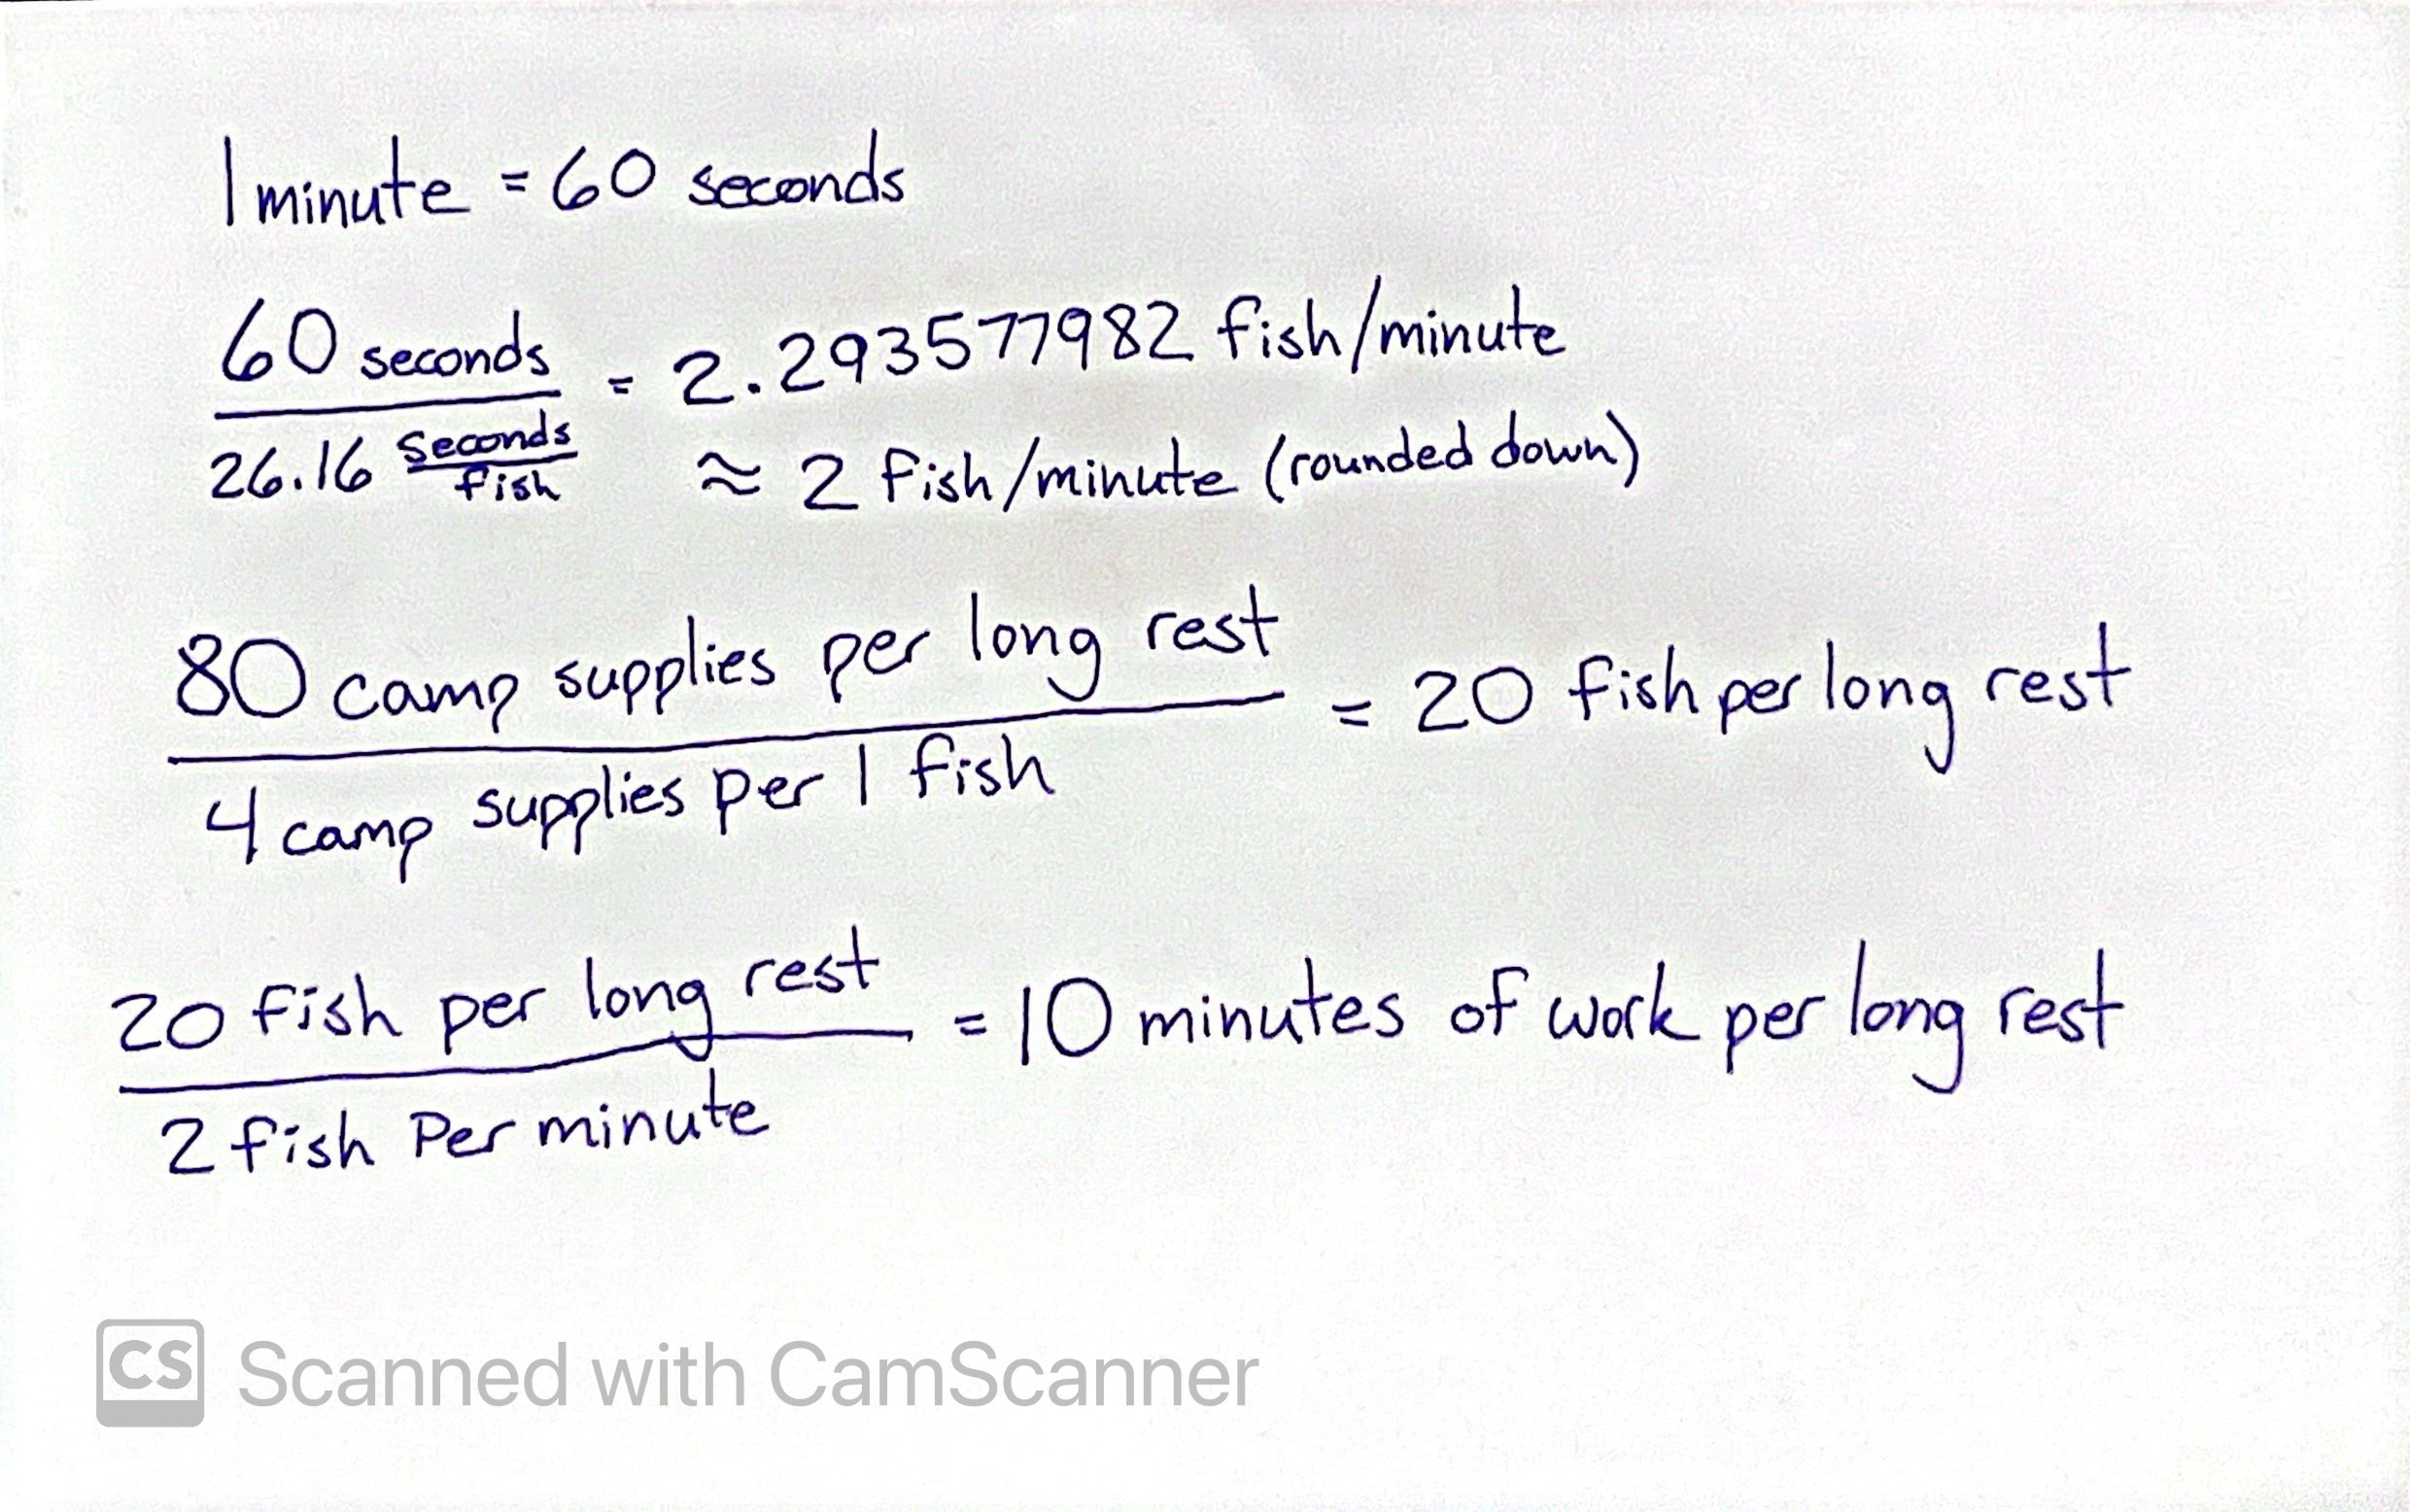 1 minute = 60 seconds
60 seconds / 26.16 seconds/fish = 2.293577982 fish/minute
≈ 2 fish/minute (rounded down)
80 camp supplies per long rest / 4 camp supplies per 1 fish = 20 fish per long rest
20 fish per long rest / 2 fish Per minute = 10 minutes of work per long rest
CS Scanned with CamScanner